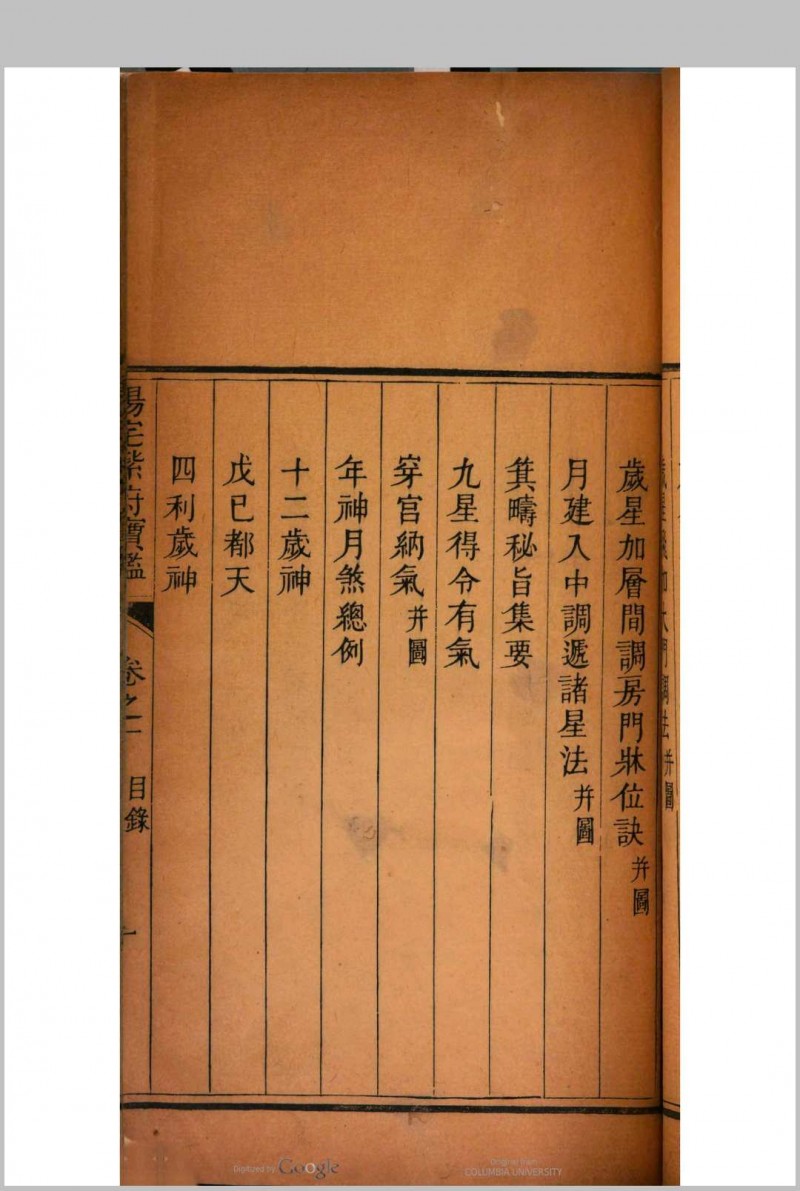 歲星加層間調房門牀位訣并圖
月建入中調遞諸星法并圖
箕疇秘旨集要
九星得令有氣
穿宮納氣并圖
年神月煞總例
十二歲神
戊巳都天
四利歲神
陽宅紫府寶鑑
卷之一
目錄
十
Digitized by Google
Original from
COLUMBIA UNIVERSITY